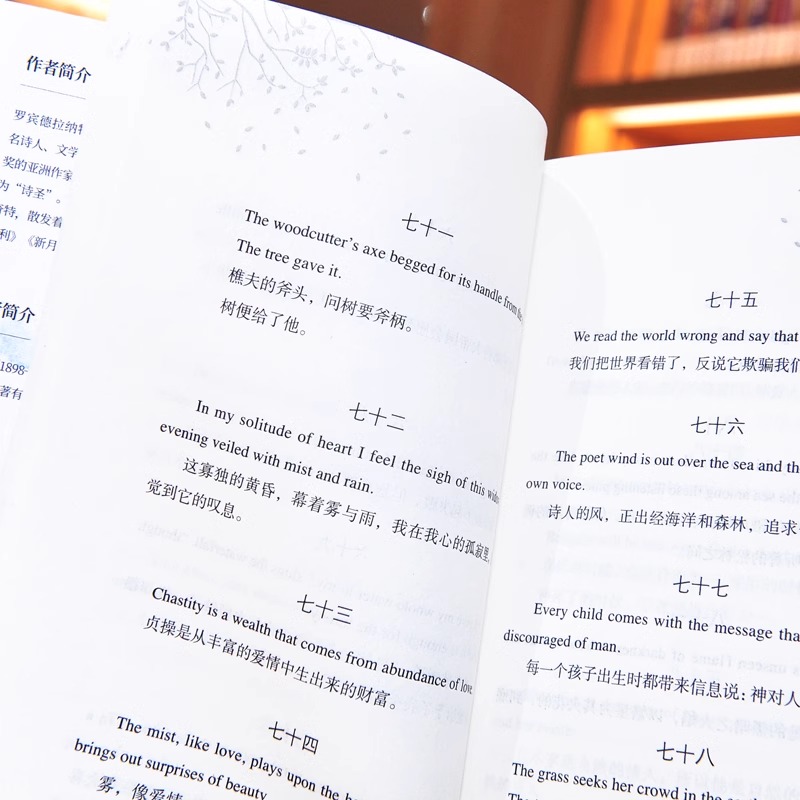 作者简介
罗宾德拉纳特
名诗人、文学
奖的亚洲作家
为“诗圣”。
奇特，散发着
利》《新月
者简介
1898-
著有
七十一
The woodcutter's axe begged for its handle from the
The tree gave it.
樵夫的斧头，问树要斧柄。
树便给了他。
七十二
In my solitude of heart I feel the sigh of this
evening veiled with mist and rain.
这寡独的黄昏，幕着雾与雨，我在我心的孤寂里，
觉到它的叹息。
七十三
Chastity is a wealth that comes from abundance of love.
贞操是从丰富的爱情中生出来的财富。
七十四
The mist, like love, plays upon the
brings out surprises of beauty
雾，像爱情
七十五
We read the world wrong and say that
我们把世界看错了，反说它欺骗我们
七十六
The poet wind is out over the sea and the
own voice.
诗人的风，正出经海洋和森林，追求
七十七
Every child comes with the message that
discouraged of man.
每一个孩子出生时都带来信息说：神对人
七十八
The grass seeks her crowd in the